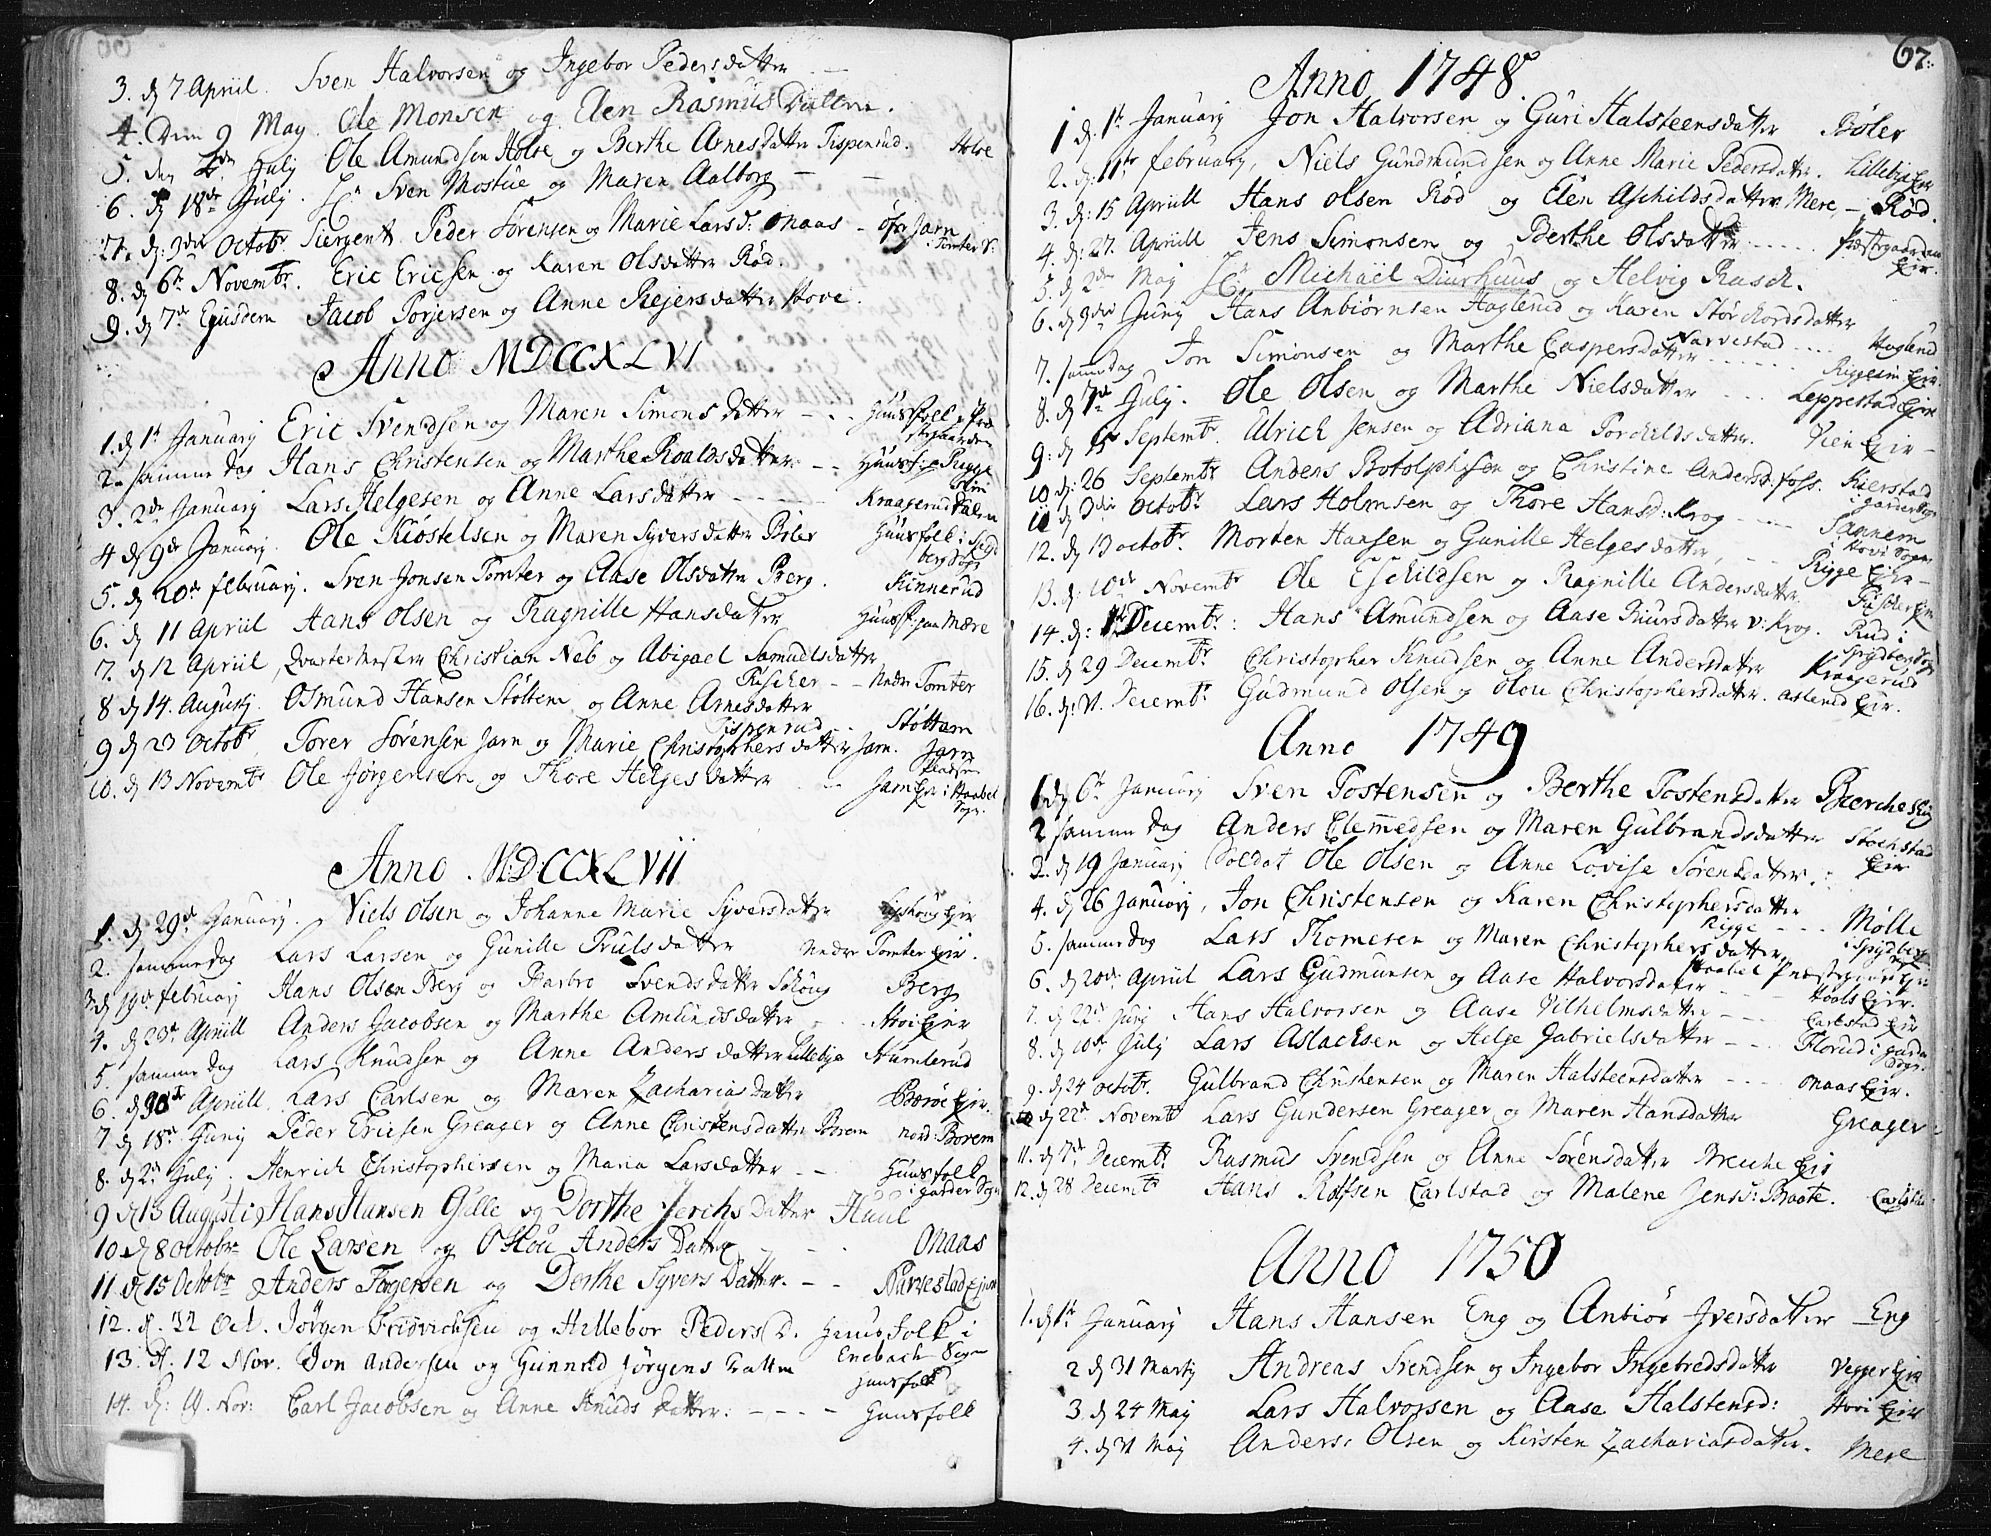 3. d 7 Apriil. Sven Halvorsen og Ingebor Pedersdatter
4. Den 9 May. Ole Monsen og Elen Rasmus Datter.
5. den July Ole Amundsen Holse og Berthe Arnesdatter Tispenrud.
6. d 18de July. Hr Sven Mostue og Maren Aalborg
d: 3die Octobr. Siergent Peder Sørensen og Marie Larsd: Maas - øfr Jarn
i Tomter
8. d 6te Novembr. Eric Ericsen og Karen Olsdatter Rød.
9. d 7de Ejusdem Jacob Porjersen og Anne Rejersdatter Hove.
Anno MDCCXLVI
1. d 1te January Eric Svendsen og Maren Simonsdatter - - Huusfolk
2. samme Dag Hans Christensen og Marthe Roaldsdatter - - Huusf: Rygge
3. 2de January Lars Helgesen og Anne Larsdatter - - - Kraagerud
4 d 9de January. Ole Kiøstelsen og Maren Syversdatter Bøler Huusfolk i
berg Sogn
5. d 20de february. Sven Jonsen Tomter og Aase Olsdatter Berg. Kinnerud
6. d 11 Apriil Hans Olsen og Ragnille Hansdatter Huusf: paa Mære
7. d 12 Apriil Qvartermester Christian Neb og Abigael Samuelsdatter
Fischer - - Nedre Tomter
8 d 14. Augusty. Osmund Hansen Støttem og Anne Arnesdatter
Tispenrud . . Støttem
9 d 23 Octobr. Torer Sørensen Jarn og Marie Christophersdatter Jarn. Jarn
Pladsen
10. d 13 Novembr Ole Jørgensen og Thore Helgesdatter . . - Jarn Eir: i Haabøl
Sogn.
Anno MDCCXLVII
1. d 29de January. Niels Olsen og Johanne Marie Syversdatter Eir
2. samme Dag Lars Larsen og Gunille Trulsdatter Nedre Tomter Eir.
3 d 19de february Hans Olsen Berg og Barbro Svendsdatter Schoug Berg
4. d 23de Apriill Anders Jacobsen og Marthe Amundsdatter . . Hoi Eir
5. samme Dag Lars Knudsen og Anne Andersdatter Lillebye Humlerud
6. d 30te Apriill. Lars Carlsen og Maren Zacharias Datter Eir.
7 d 18de Juny Peder Ericsen Greager og Anne Christensdatter Borem nord: Borem
8. d 2de July. Henrich Christophersen og Maria Larsdatter - - Huusfolk
i garder Sogn
9 d 13 Augusti Hans Hansen Gille og Dorthe Jerichs Datter Huul
10 d 8 Octobr Ole Larsen og Olou Anders Datter Maas
11 d 15 Octobr Anders Torgersen og Dorthe Syvers Datter. - - Narvestad Ejer
12. d. Oct. Jørgen Fridrichsen og Hillebor Peders D. Huusfolk i
Enebach Sogn
13. d. 12 Nov. Jon Andersen og Gunnild Jørgens Datter
Huusfolk
14. d: Nov: Carl Jacobsen og Anne Knuds Datter: - - - Huusfolk
67.
Anno 1748.
1 d: 1te January Jon Halvorsen og Guri Halsteensdatter Bøler
2. d: 11te february, Niels Gundmundsen og Anne Marie Pedersdatter. Lillebye Eir
3. d: 15 Apriill Hans Olsen Rød og Elen Aschildsdatter Mere - Rød.
4. d: 27. Apriill Jens Simonsen og Berthe Olsdatter - - - - Præstegaarden
Eir.
5. d 2de May Hr. Michaël Diurhuus og Helvig Rasch.
6. d 3die Juny Hans Anbiørnsen Haglund og Karen Størchordsdatter
Narvestad - - - - Haglund
7. samme dag Jon Simonsen og Marthe Caspersdatter - - - - Riggesin Eir
8. d 7de July. Ole Olsen og Marthe Nielsdatter - - - Leppestad Eir
9: d Septembr. Ulrich Jensen og Adriana Torchildsdatter. Vien Eir -
10. d: 26 Septembr Anders Botolphsen og Christine Andersd. foss. Kierstad
i garder Sogn
11 d 3die Octobr Lars Holmsen og Thore Hansd: Krog - - - Sannem
i Hovi Sogn
12. d. 13 octobr. Morten Hansen og Gunille Helgesdatter, - - Rigge Eir -
13. d: 10de Novembr Ole Eschildsen og Ragnille Andersdatter. Eir
14. d: 1te Decembr: Hans Amundsen og Aase Biursdatter v: Krog. Rud i
Spydberg Sogn
15. d 29 Decembr Christopher Knudsen og Anne Andersdatter Kraagerud
16. d: 31. Decembr Gudmund Olsen og Olou Christophersdatter. aslerud Eir.
Anno 1749
1 d 6te January Sven Tostensen og Berthe Tostensdatter Bierche Eir
2 samme Dag Anders Clemmedsen og Maren Gulbrandsdatter Stochstad
Eir
3. d 19 January Soldat Ole Olsen og Anne Lovise Sørensdatter.
4. d 26 January, Jon Christensen og Karen Christophersdatter
Rigge - - - Mølle
i Spydberg
5. samme Dag Lars Thomesen og Maren Christophersdatter
6. d 20de Apriil Lars Gudmunsen og Aase Halvorsdatter
Hoals Eir.
7. d 22de Juny Hans Halvorsen og Aase Vilhelmsdatter - - - Carlstad Eir
8. d 10de July Lars Aslachsen og Helge Gabrielsdatter - - Florud i garder
Sogn.
9. d 24 octobr. Gulbrand Christensen og Maren Halsteensdatter - - - Maas Eir.
10 d 22de Novembr Lars Gundersen Greager og Maren Hansdatter Greager
11. d 7de Decembr. Rasmus Svendsen og Anne Sørensdatter Breche Eir
12. d 28 Decembr Hans Rolfsen Carlstad og Malene Jensd: Baate.
Anno 1750
1. d 1te January Hans Hansen Eng og Anbiør Iversdatter Eng
2 d 31 Marty Andreas Svendsen og Ingebor Ingebredsdatter Vegger Eir
3. d 24 May Lars Halvorsen og Aase Halstensd: Hovi Eir
4. d 31 May Anders Olsen og Kirsten Zachariasdatter. Mere